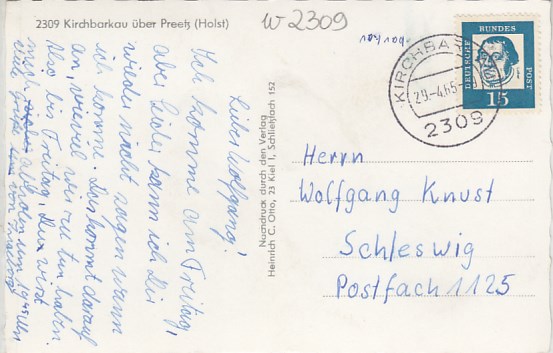 2309 Kirchbarkau über Preetz (Holst)
W 2309
Lieber Wolfgang!
Ich komme am Freitag,
aber leider kann ich Dir
wieder nicht sagen wann
ich komme. Das kommt darauf
an, wieviel wir zu tun haben.
Also bis Freitag,
Nachdruck durch den Verlag
Heinrich C. Otto, 23 Kiel 1, Schließfach 152
KIRCHBARKAU
29.-4.65
2309
DEUTSCHE
BUNDES
POST
15
Herrn
Wolfgang Knust
Schleswig
Postfach 1125